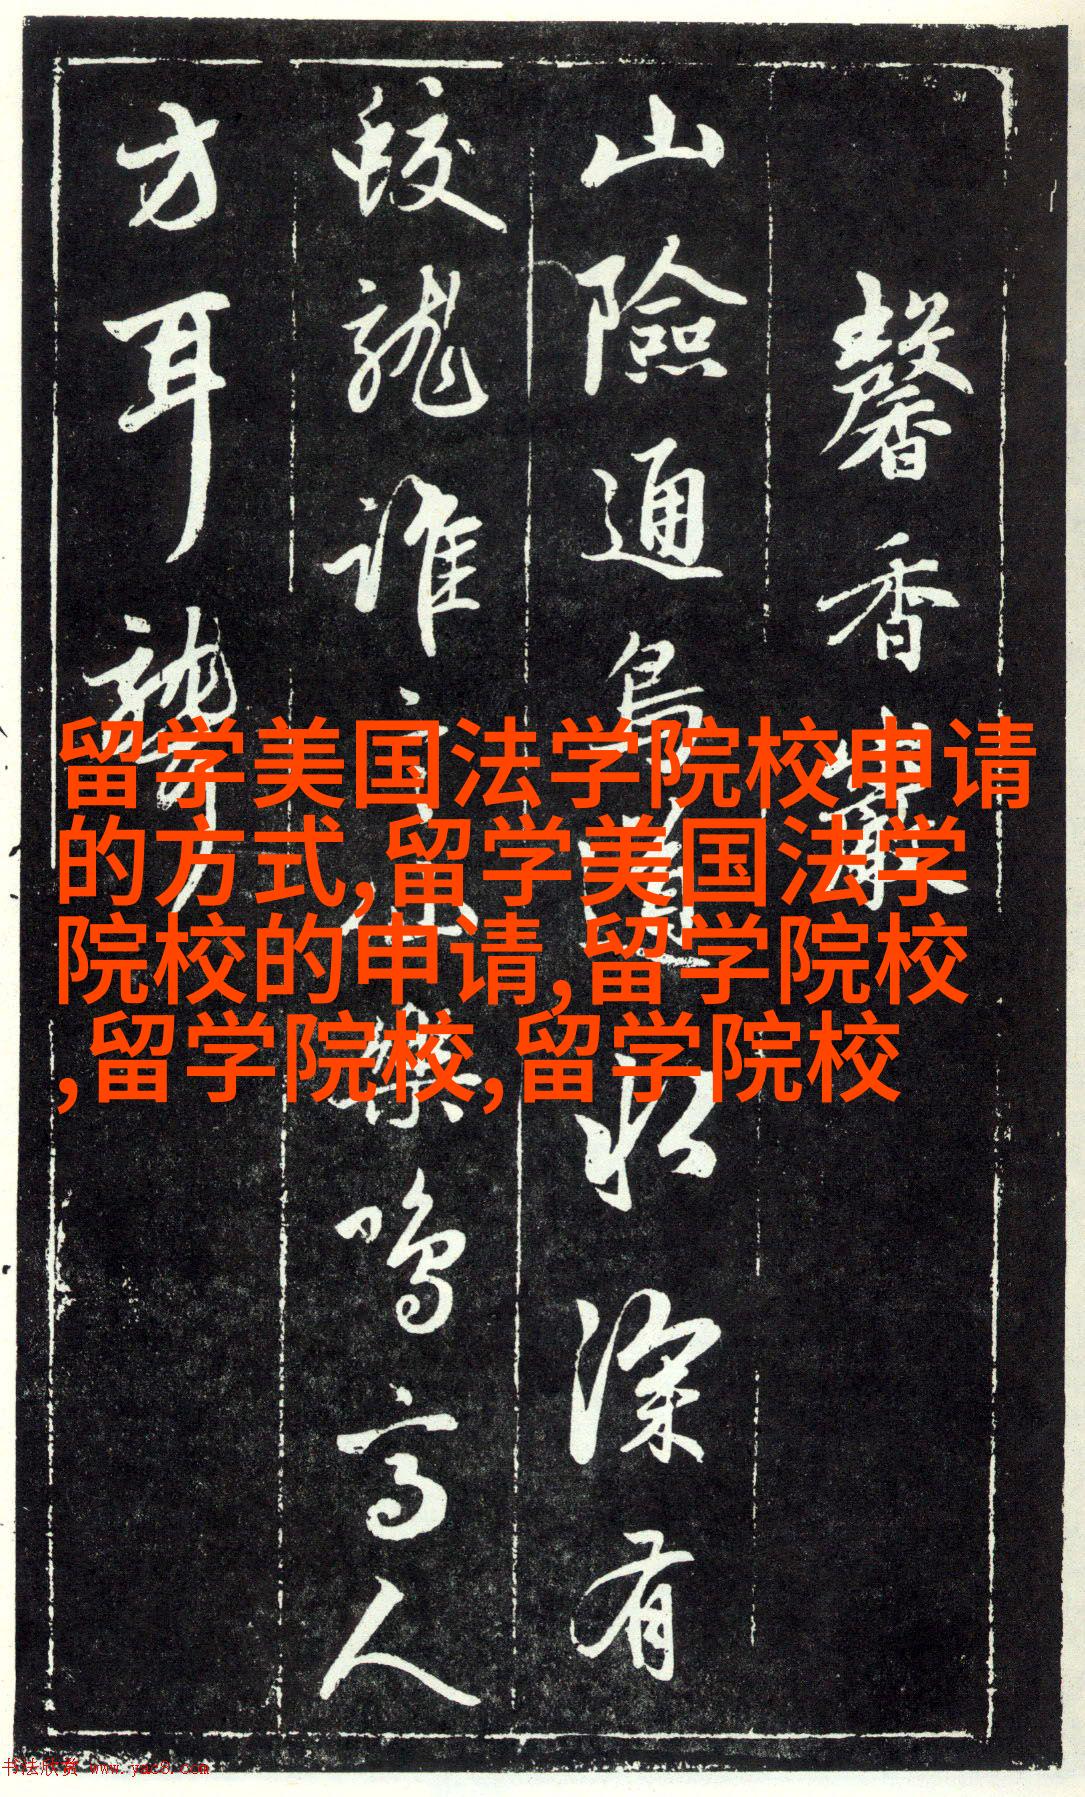 馨香
山險通鳥水深有
蛟龍誰樂鳴高人
方耳聾
留学美国法学院校申请
的方式,留学美国法学
院校的申请,留学院校
,留学院校,留学院校
书法欣赏 www.yac8.com